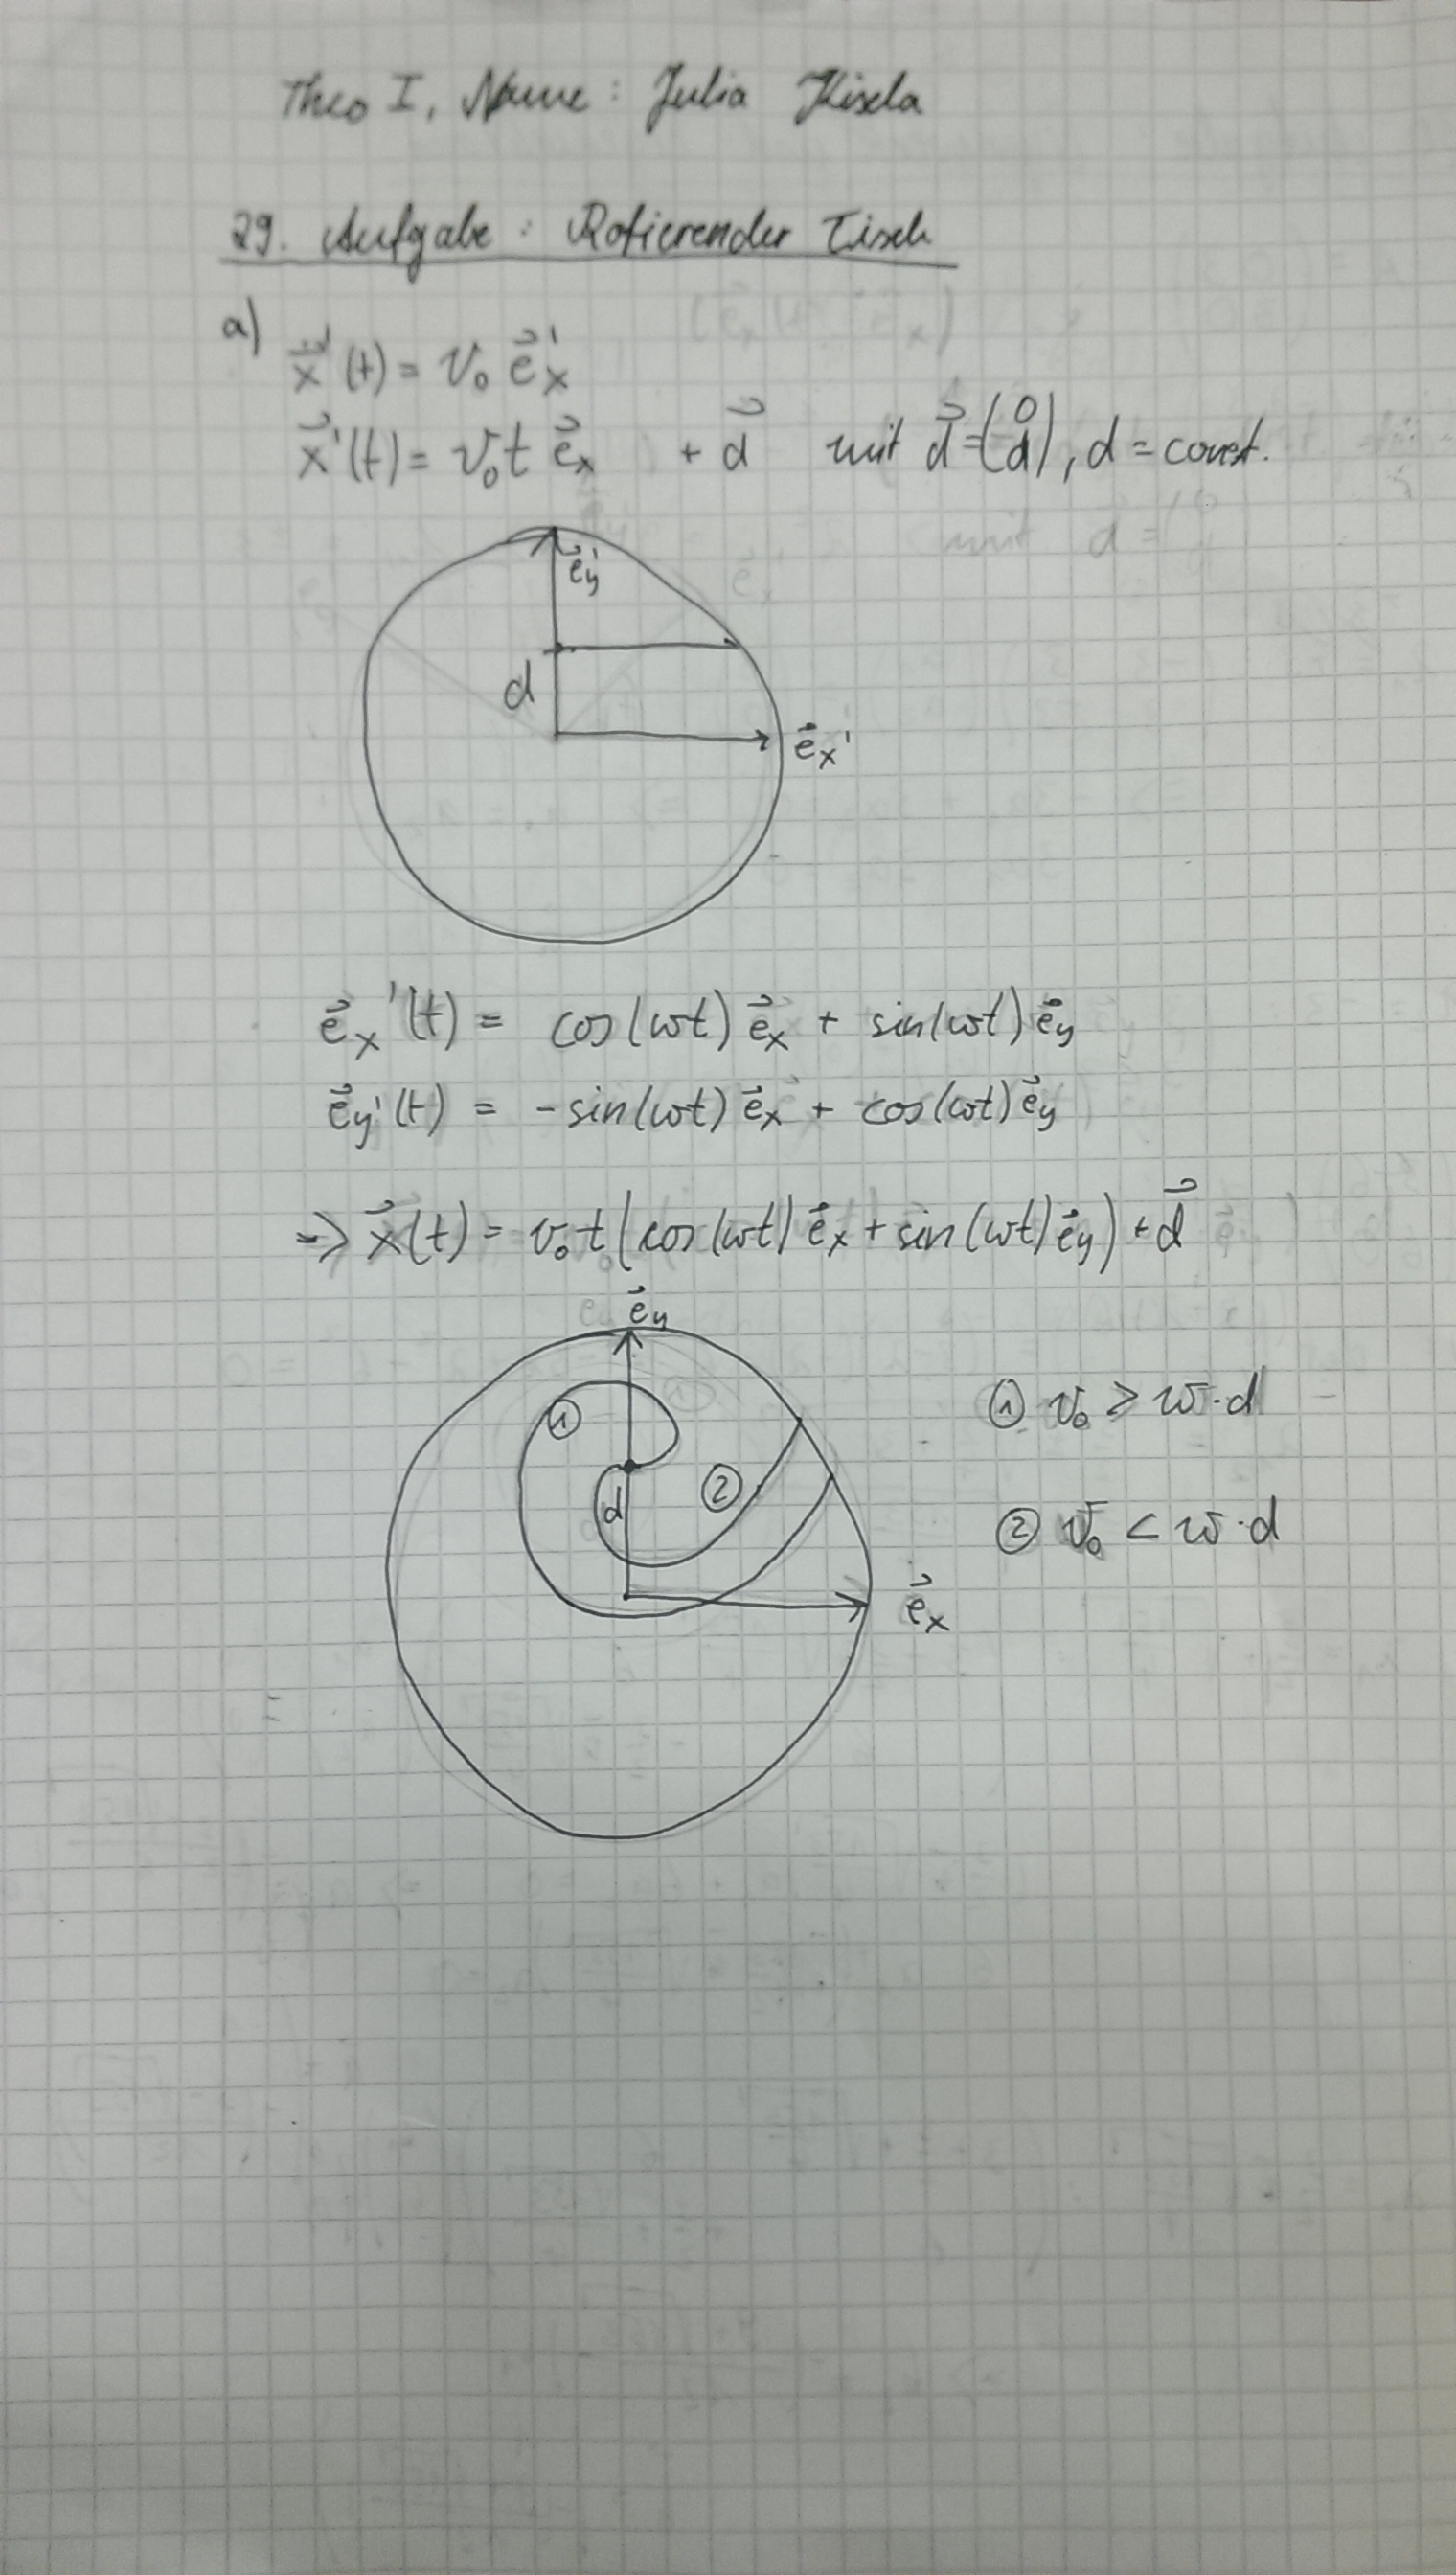 Theo I, Name: Julia Kisela
29. Aufgabe: Rotierender Tisch
a) ẋ⃗'(t) = v₀ e⃗ₓ'
x⃗'(t) = v₀t e⃗ₓ + d⃗ mit d⃗ = (0 d), d = const.
e⃗y'
d
e⃗ₓ'
e⃗ₓ'(t) = cos(ωt) e⃗ₓ + sin(ωt) e⃗y
e⃗y'(t) = -sin(ωt) e⃗ₓ + cos(ωt) e⃗y
=> x⃗(t) = v₀t (cos(ωt) e⃗ₓ + sin(ωt) e⃗y) + d⃗
e⃗y
① v₀ ≥ ω·d
①
②
d
② v₀ < ω·d
e⃗ₓ